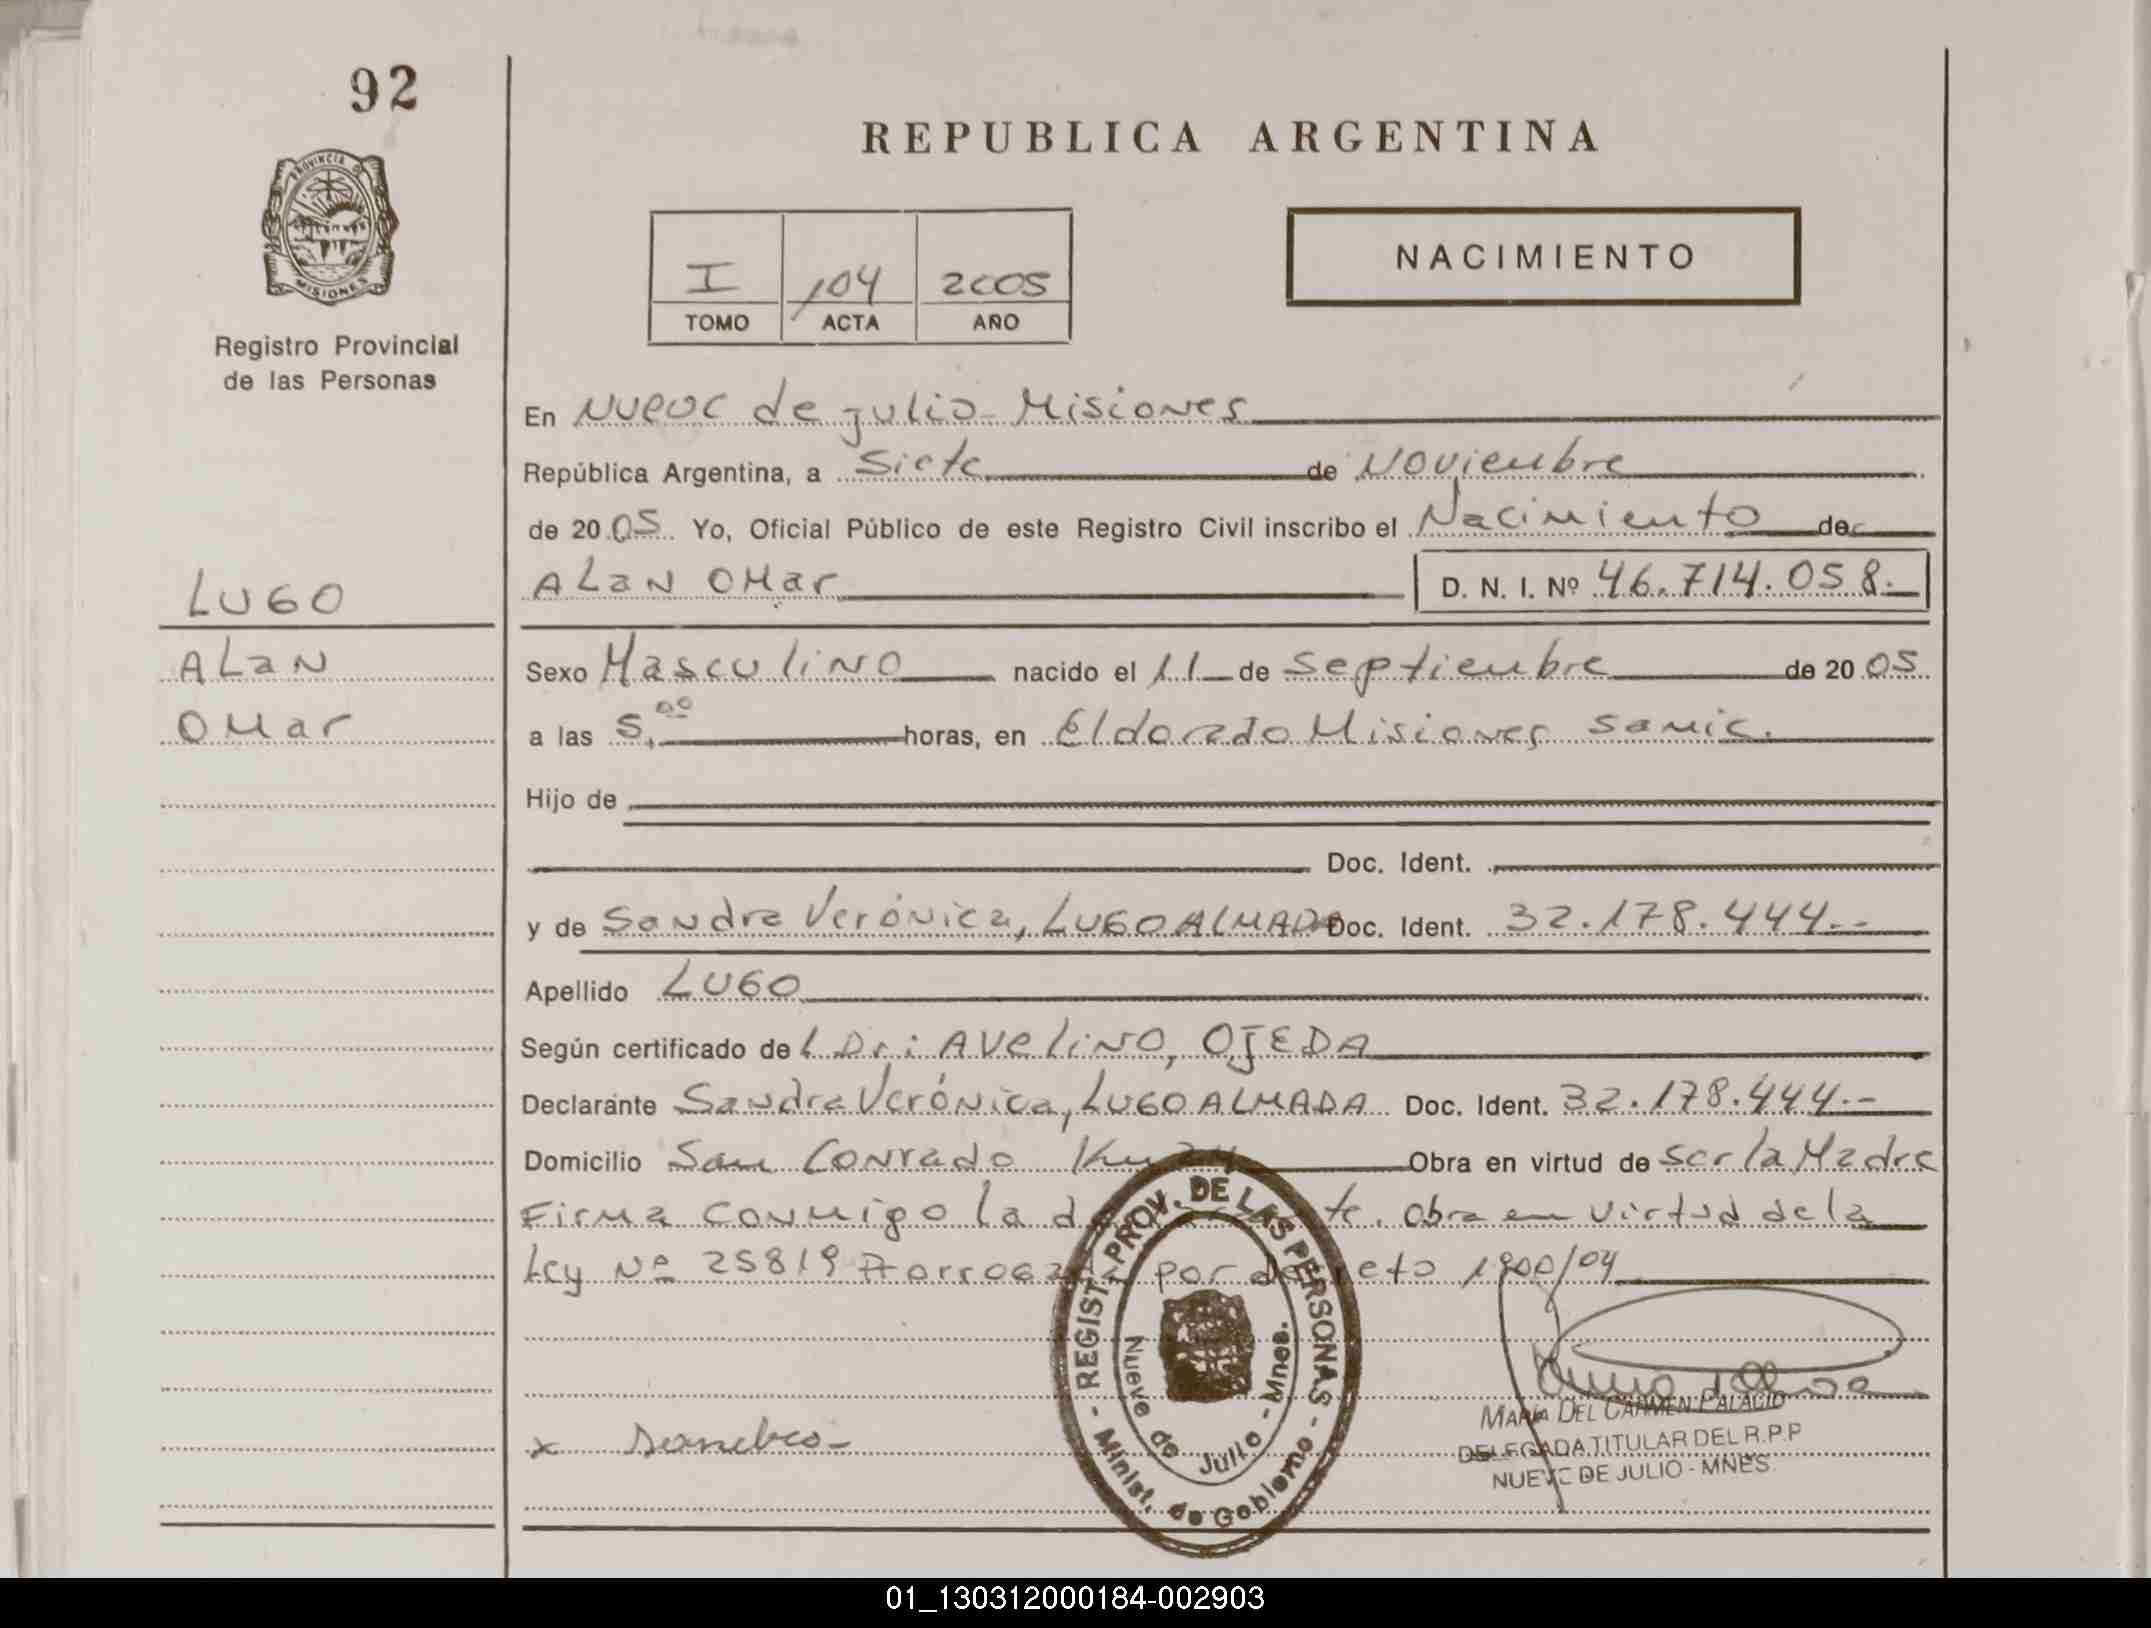 92
REPUBLICA ARGENTINA
PROVINCIA DE
MISIONES
Registro Provincial
de las Personas
I 104 2005
TOMO ACTA AÑO
NACIMIENTO
En Nueve de julio Misiones
República Argentina, a Siete de Noviembre
de 2005 Yo, Oficial Público de este Registro Civil inscribo el Nacimiento de
LUGO
ALan OMar D. N. I. Nº 46.714.058.
ALan
OMar
Sexo Masculino nacido el 11 de Septiembre de 2005
a las 5,00 horas, en Eldorado Misiones Samic.
Hijo de
Doc. Ident.
y de Sandra Verónica, LUGO ALMADA Doc. Ident. 32.178.444.--
Apellido LUGO
Según certificado de l Dr: AVelino, OJEDA
Declarante Sandra Verónica, LUGO ALMADA Doc. Ident. 32.178.444.--
Domicilio San Conrado Obra en virtud de ser la Madre
Firma conmigo la Obra en virtud de la
Ley Nº 25819 por 1900/04
- REGIST. PROV. DE LAS PERSONAS -
Minist. de Gobierno
Nueve de Julio - Mnes.
MARÍA DEL CARMEN PALACIO
DELEGADA TITULAR DEL R.P.P
NUEVE DE JULIO - MNES.
x
01_130312000184-002903